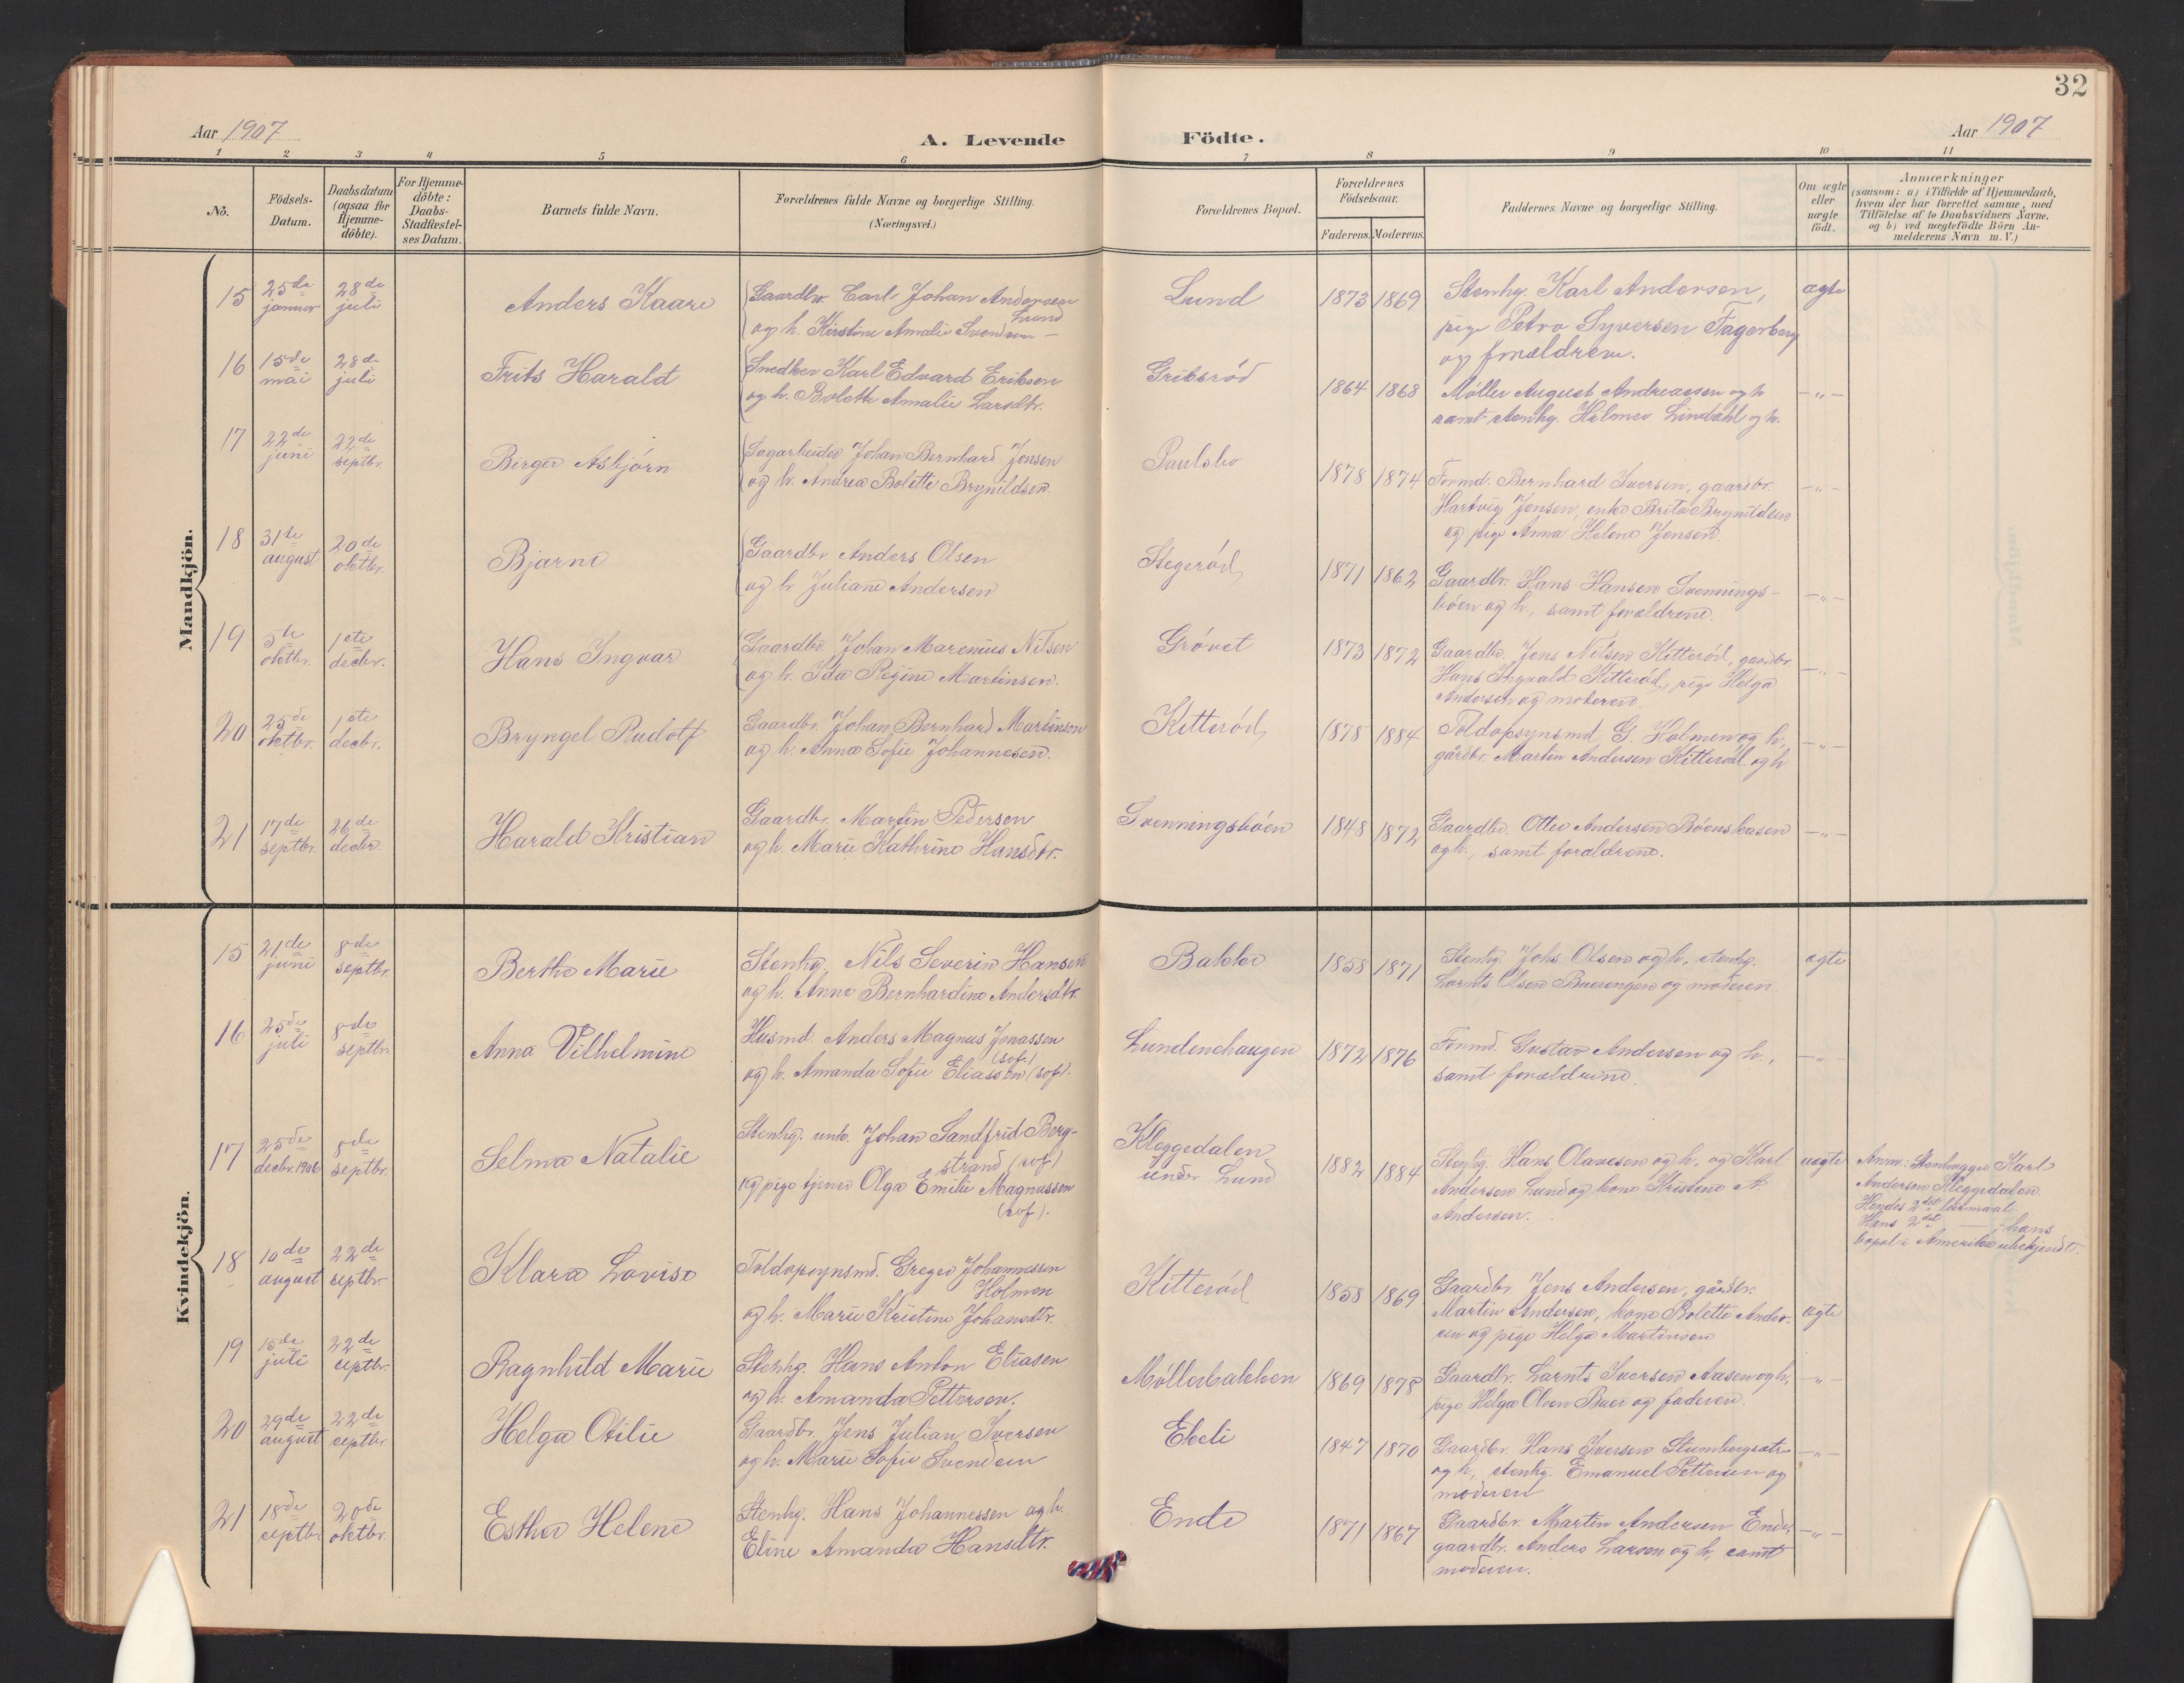 32
Aar 1907
A. Levende Födte.
Aar 1907
1 2 3 4 5 6 7 8 9 10 11
No.
Födsels-Datum.
Daabsdatum (ogsaa for Hjemme-döbte).
For Hjemme-döbte: Daabs-Stadfæstel-ses Datum.
Barnets fulde Navn.
Forældrenes fulde Navne og borgerlige Stilling.
(Næringsvei.)
Forældrenes Bopæl.
Forældrenes Födselsaar.
Faderens. Moderens.
Faddernes Navne og borgerlige Stilling.
Om ægte eller uægte födt.
Anmærkninger
(saasom: a) i Tilfælde af Hjemmedaab,
hvem der har forrettet samme, med
Tilföielse af to Daabsvidners Navne.
og b) ved uægtefödte Börn An-
melderens Navn m. V.)
Mandkjön.
15 25de januar 28de juli Anders Kaare Gaardbr. Carl Johan Andersen Lund
og h. Kirstine Amalie Svendsen —
Lund 1873 1869 Stenhg. Karl Andersen, ægte
pige Petra Syversen Fagerberg
og forældrene.
16 15de mai 28de juli Frits Harald Karl Edvard Eriksen
og h. Bolette Amalie Larsdtr.
Gribsrød 1864 1868 Møller August Andreassen og h. —„—
samt stenhg. Hilmer Lindahl og h.
17 22de juni 22de septbr. Birger Asbjørn Sagarbeider Johan Bernhard Jensen
og h. Andrea Bolette Brynildsen.
Paulsbo 1878 1874 Formd. Bernhard Iversen, gaardbr. —„—
Hartvig Jensen, enke Brita Brynildsen
og pige Anna Helene Jensen.
18 31te august 20de oktbr. Bjarne Gaardbr. Anders Olsen
og h. Juliane Andersen
Stegerød 1871 1862 Gaardbr. Hans Hansen Svennings- —„—
bøen og h., samt forældrene.
19 5te oktbr. 1ste decbr. Hans Ingvar Gaardbr. Johan Marenius Nilsen
og h. Ida Regine Martinsen.
Grøvet 1873 1872 Gaardbr. Jens Nilsen Kitterød, gaardbr. —„—
Hans Ingvald Kitterød, pige Helga
Andersen og moderen.
20 25de oktbr. 1ste decbr. Bryngel Rudolf Gaardbr. Johan Bernhard Martinsen
og h. Anna Sofie Johannesen.
Kitterød 1878 1884 Toldopsynsmd. G. Holmen og h., —„—
gårdbr. Martin Andersen Kitterød og h
21 17de septbr. 26de decbr. Harald Kristian Gaardbr. Martin Pedersen
og h. Marie Kathrine Hansdtr.
Svenningsbøen 1848 1872 Gaardbr. Otter Andersen Bøenskasen —„—
og h., samt forældrene.
Kvindekjön.
15 21de juni 8de septbr. Berthe Marie Stenhg. Nils Severin Hansen
og h. Anne Bernhardine Andersdtr.
Bakke 1858 1871 Stenhg. Johs. Olsen og h., stenhg. ægte
Larnts Olsen Buerengen og moderen
16 25de juli 8de septbr. Anna Vilhelmine Husmd. Anders Magnus Jonassen (sof.)
og h. Amanda Sofie Eliassen (sof).
Lundenehaugen 1872 1876 Formd. Gustav Andersen og h., —„—
samt forældrene.
17 25de decbr. 1906 8de septbr. Selma Natalie Stenhg. unk. Johan Sandfrid Berg-
strand (sof)
og pige tjener Olga Emilie Magnussen
(sof).
Kleggedalen
under Lund
1882 1884 Stenhg. Hans Olavesen og h. og Karl uægte
Andersen Lund og kone Kristine A.
Andersen.
Anm.: Stenhugger Karl
Andersen Kleggedalen.
Hendes 2det leiermaal
Hans 2det — ; hans
bopæl i Amerika ubekjendt.
18 10de august 22de septbr. Klara Lovise Toldopsynsmd. Greger Johannesen
Holmen
og h. Marie Kristine Johansdtr.
Kitterød 1858 1869 Gaardbr. Jens Andersen, gårdbr.
Martin Andersen, kone Bolette Ander- ægte
sen og pige Helga Martinsen
19 15de juli 22de septbr. Ragnhild Marie Stenhg. Hans Anton Eliasen
og h. Amanda Pettersen.
Møllerbakken 1869 1878 Gaardbr. Larnts Iversen Aasen og h., —„—
pige Helga Olsen Buer og faderen.
20 29de august 22de septbr. Helga Otilie Gaardbr. Jens Julian Iversen
og h. Marie Sofie Svendsen
Ekeli 1847 1870 Gaardbr. Hans Iversen —„—
og h., stenhg. Emanuel Pettersen og
moderen
21 18de septbr. 20de oktbr. Esther Helene Stenhg. Hans Johannessen og h.
Eline Amanda Hansdtr.
Ende 1871 1867 Gaardbr. Martin Andersen Ende, —„—
gaardbr. Anders Larsen og h, samt
moderen.